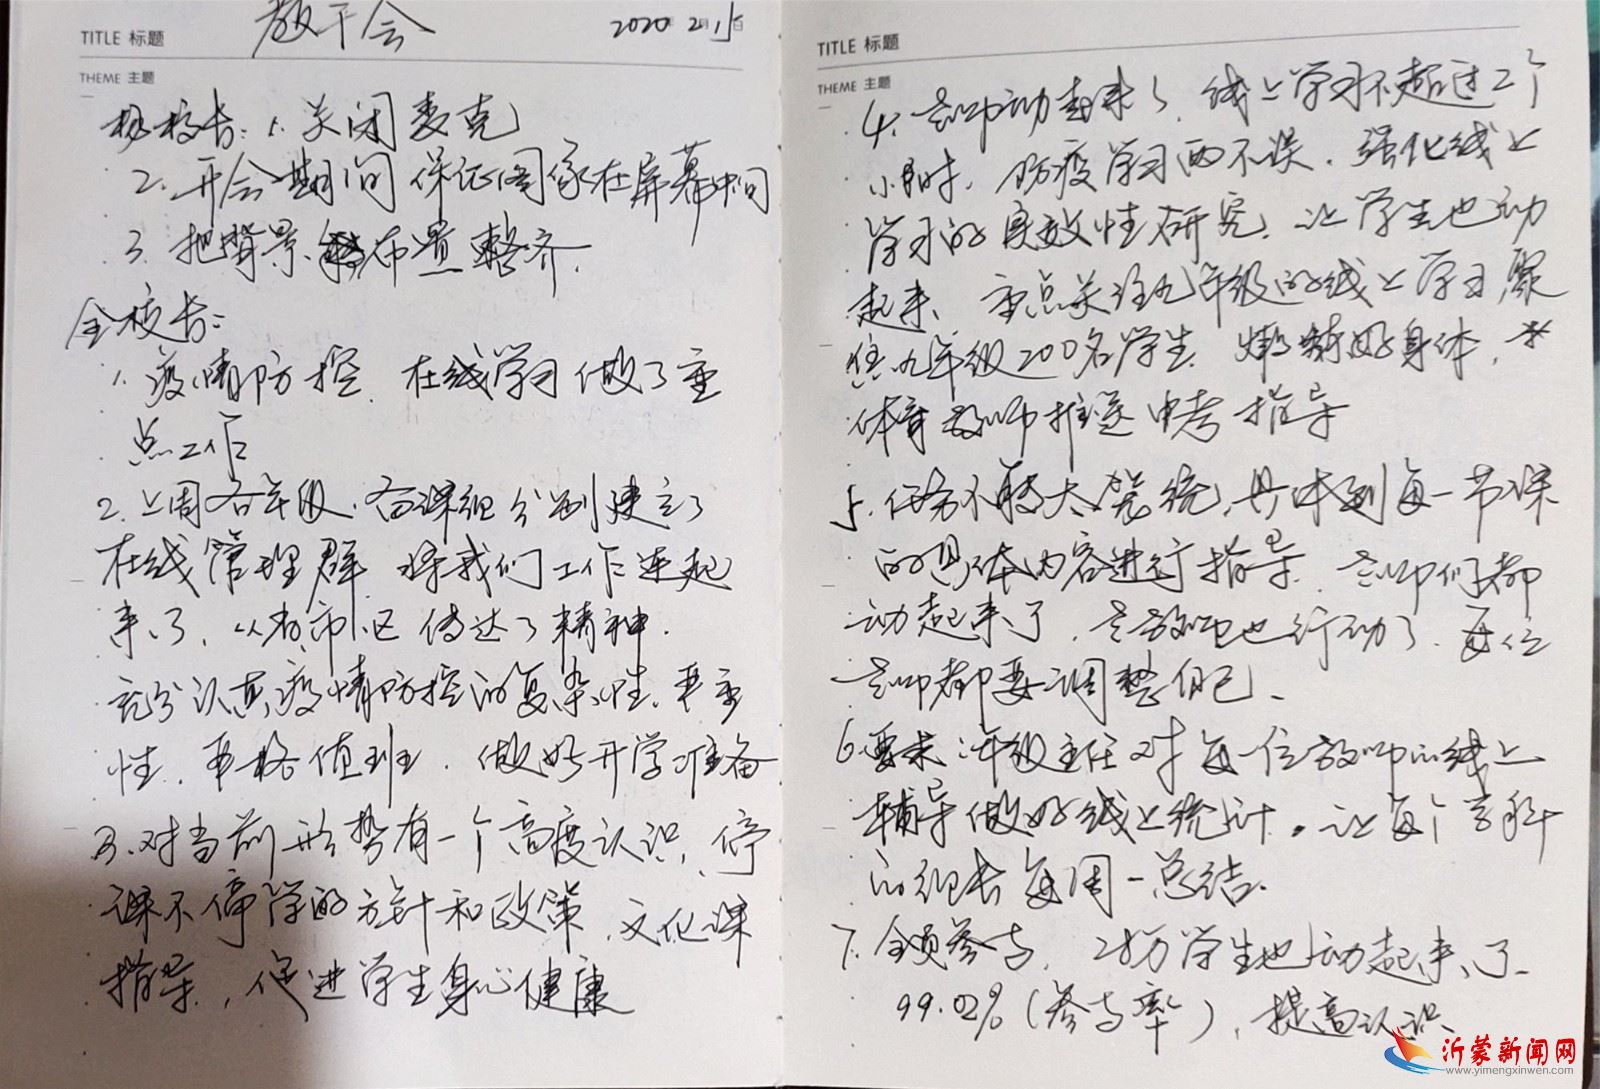 教干会
2020年2月15日
TITLE 标题
THEME 主题
杨校长:1.关闭麦克
2.开会期间保证图像在屏幕中间
3.把背景布置整齐.
全校长:
1.疫情防控.在线学习做了重
点工作
2.上周各年级.备课组分别建立了
在线管理群.将我们工作连起
来了,从省市区传达了精神.
充分认真疫情防控的复杂性.严重
性.严格值班.做好开学准备
3.对当前形势有一个高度认识,停
课不停学的方针和政策.文化课
指导,促进学生身心健康
TITLE 标题
THEME 主题
4.老师动起来了.线上学习不超过2个
小时.防疫学习两不误.强化线上
学习的实效性研究.让学生也动
起来.重点关注九年级的线上学习,聚
焦九年级200名学生.锻炼好身体,
体育教师推送中考指导
5.任务不再大笼统,具体到每一节课
的具体内容进行指导.老师们都
动起来了.老教师也行动了.每位
老师都要调整自己.
6.要求:年级主任对每一位教师的线上
辅导做好线上统计.让每个学科
的组长每周一总结.
7.全员参与,学生也动起来了.
99.02%(参与率),提高认识.
沂蒙新闻网
www.yimengxinwen.com